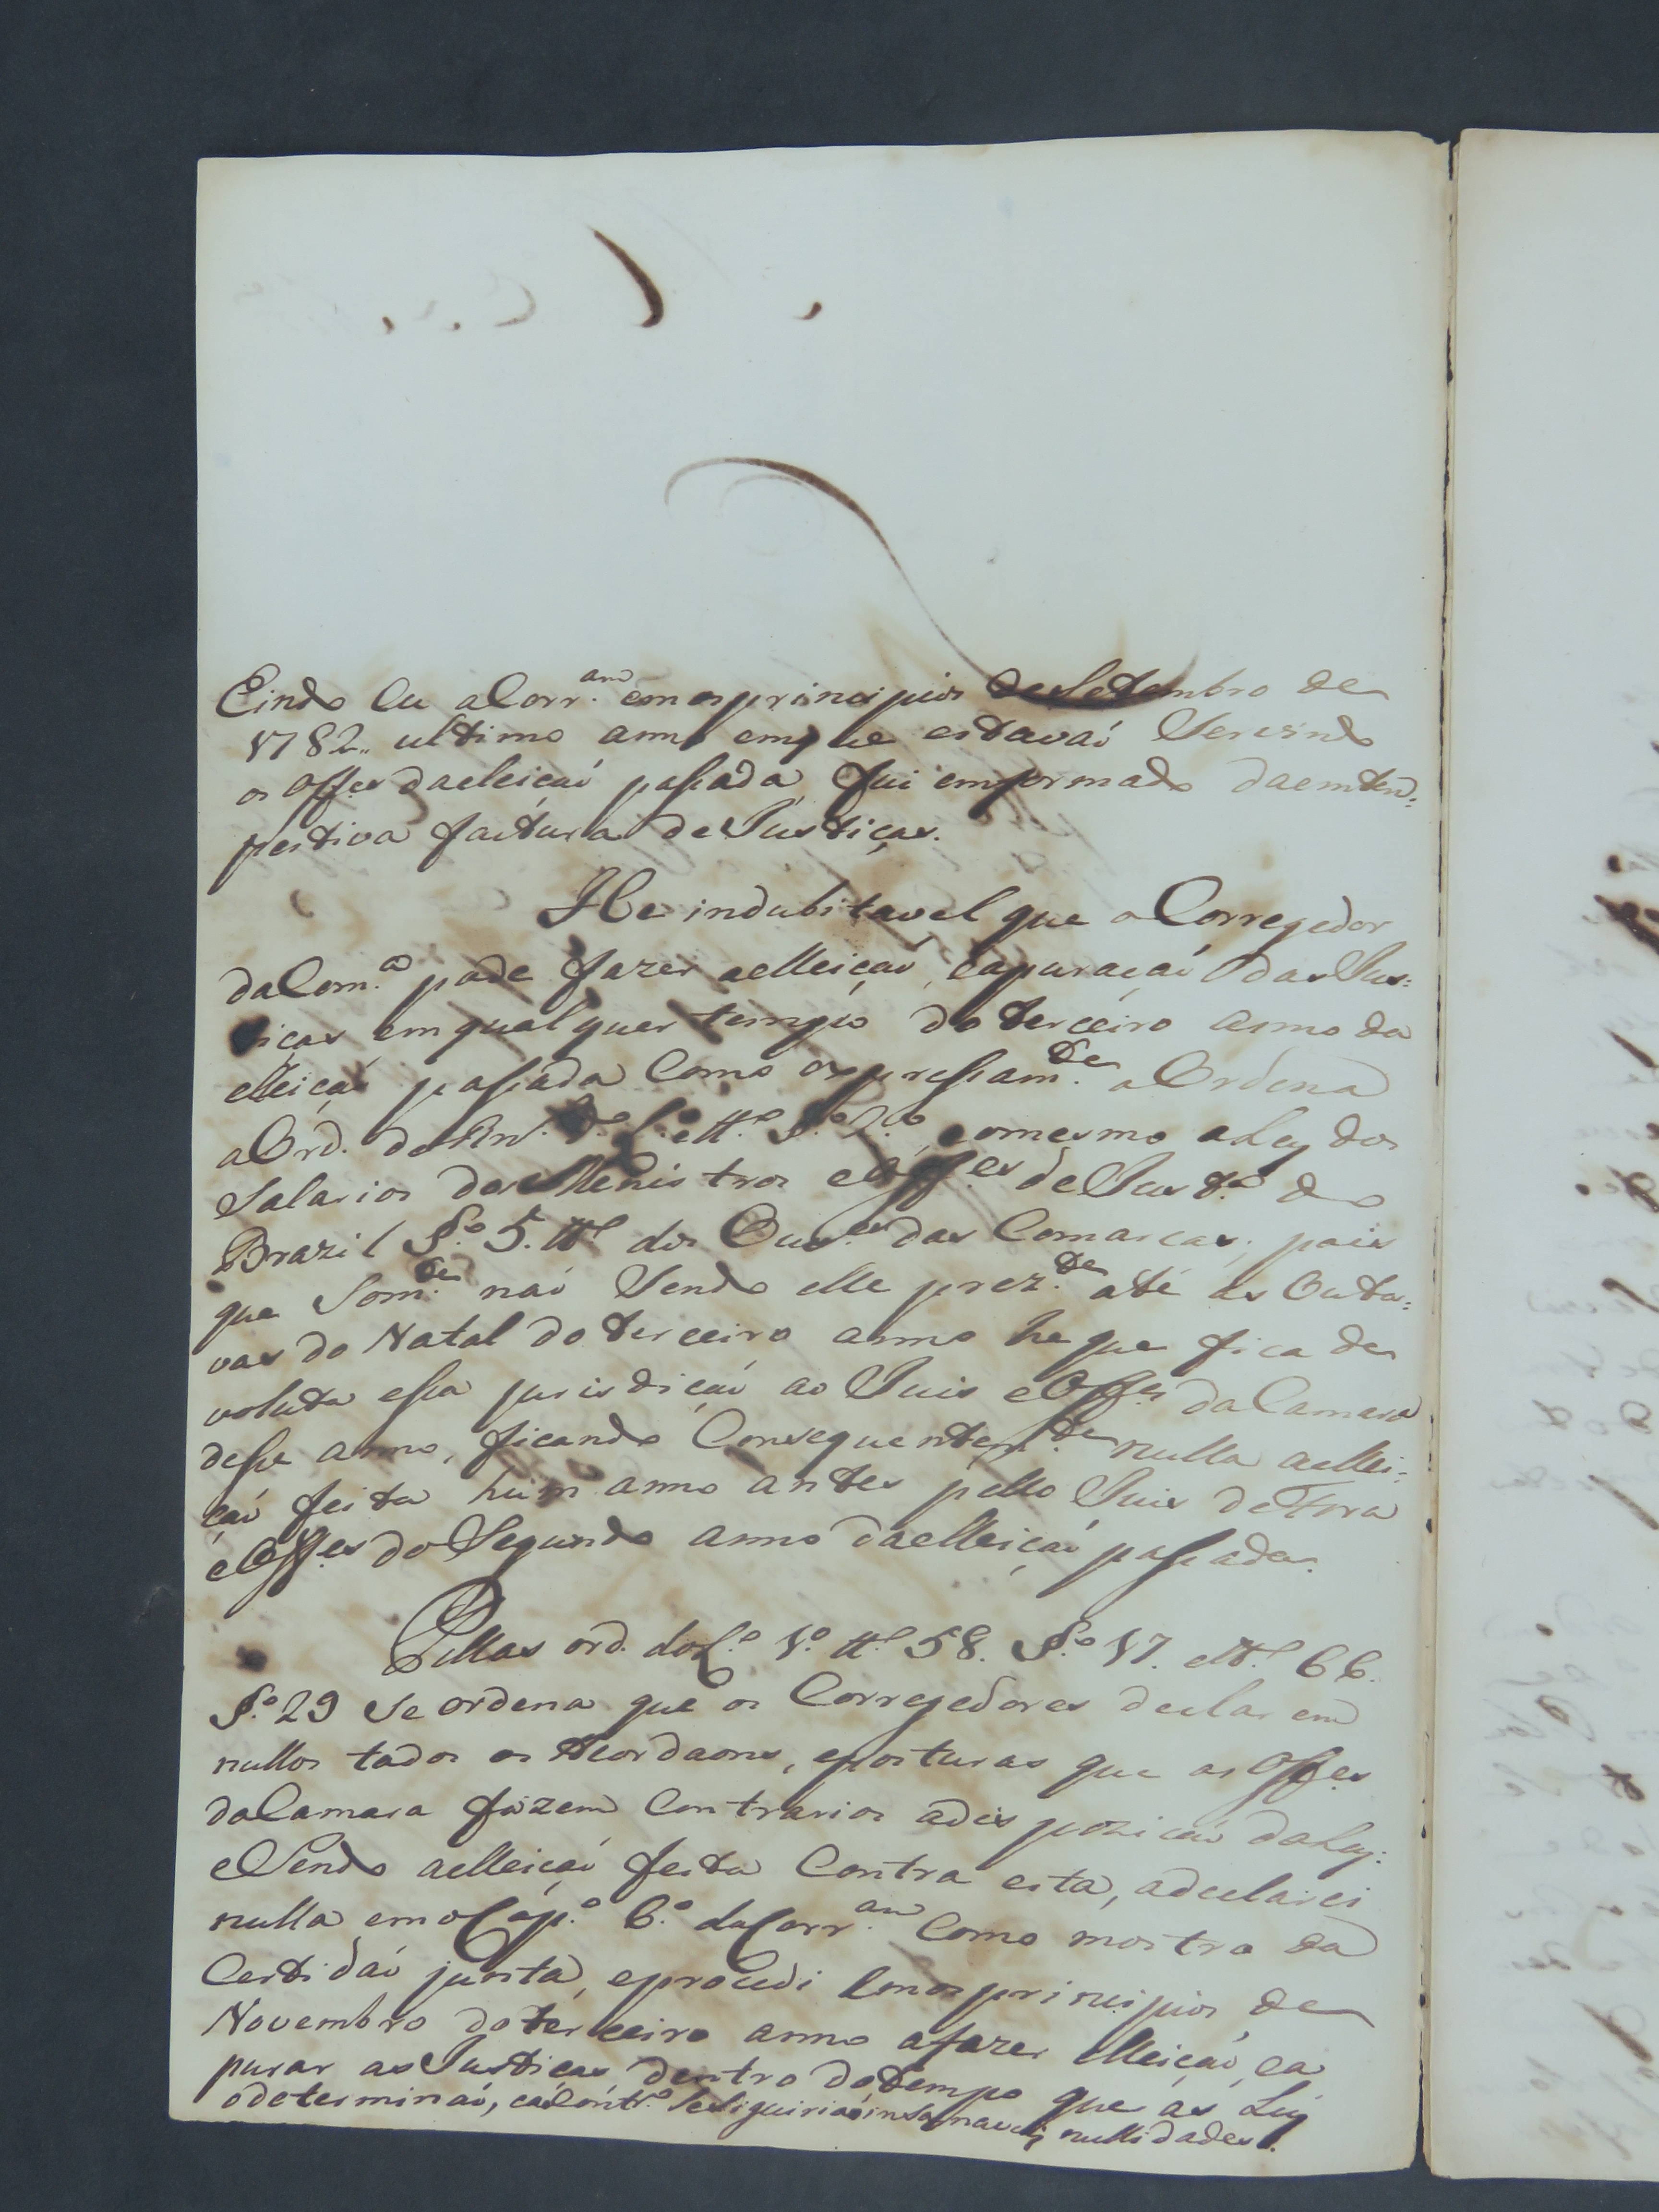 Eindo Eu a Corr.am em os principios de Setembro de
1782,, ultimo anno em que estavaó Servindo
os Offes da eleiçaó passada, fui emformado da emtem=
pestiva factura de Justiças.
He indubitavel que o Corregedor
da Com.ca pode fazer a elleiçaó, e apuraçaó das Jus=
tiças em qual quer tempo do terceiro anno da
elleiçaó passada Como expressam.te o Ordena
a Ord. do Rn.
e o mesmo a Ley dos
Salarios dos Menistros e Off.es de Just.a do
Brazil §.o 5. tt.o dos Ouv.es das Comarcas; pois
que Som.te naó Sendo elle prez.te até as Outa=
vas do Natal do terceiro anno he que fica de
voluta essa jurisdiçaó ao Juis e Off.es da Camara
desse anno, ficando Consequentem.te nulla a ellei=
çaó feita hum anno antes pello Juis de Fora
e Off.es do Segundo anno da elleiçaó passada.
Pellas ord. do L.o 1.o tt.o 58. §.o 17. e tt.o 66.
§.o 29 Se ordena que os Corregedores declarem
nullos todos os Acordaons, e posturas que os Off.es
da Camara fazem Contrarios a dispoziçaó da Ley:
e Sendo a elleiçaó feita Contra esta, a declarei
nulla em o Cap.o 6.o da Corr.am Como mostra da
Certidaó junta, e procedi em os principios de
Novembro do terceiro anno a fazer elleiçaó, e a
purar as Justiças dentro do tempo que as Leys
o determinaó, e ao Contr.o Se Siguiriaó insanaveis nullidades.